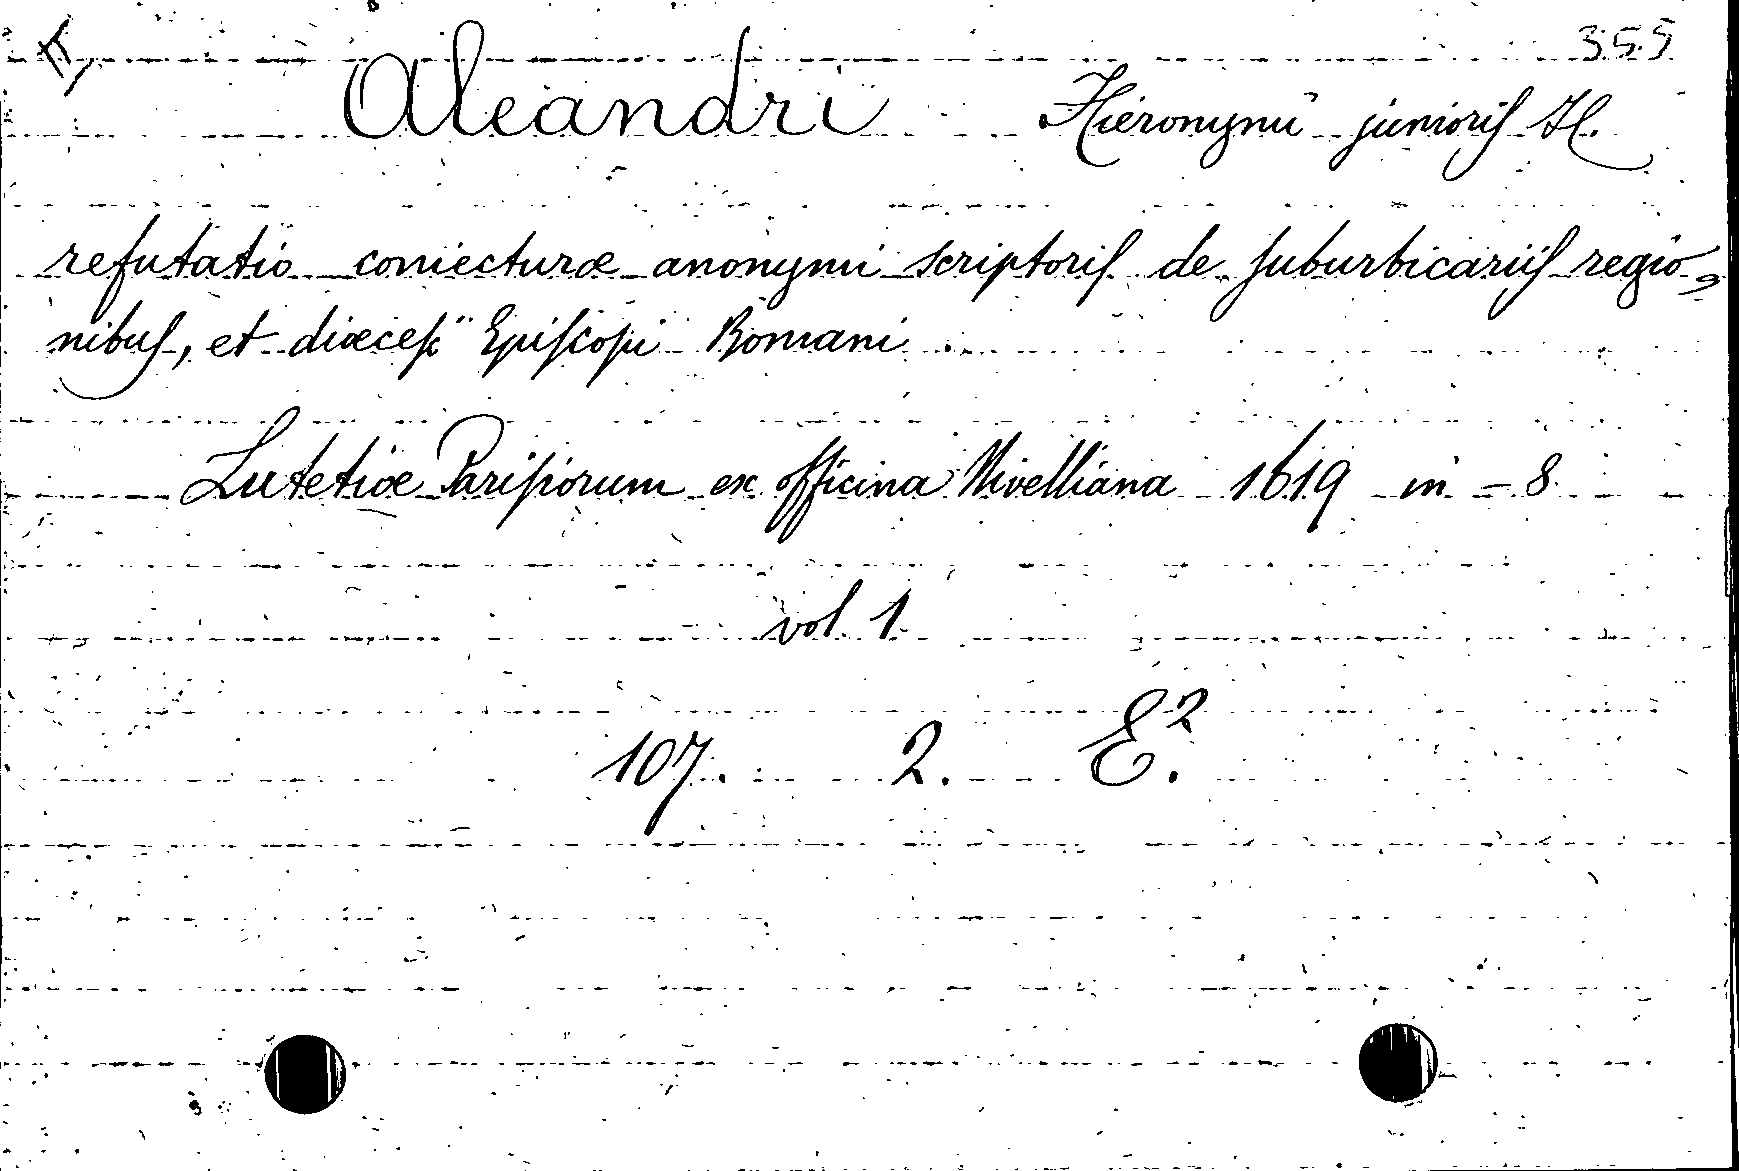 355
Aleandri Hieronymi junioris
refutatio coniecturæ anonymi scriptoris de suburbicariis regio-
nibus, et diœcesi Episcopi Romani
Lutetiæ Parisiorum ex officina Nivelliana 1619 in - 8
vol. 1
107. 2. E².